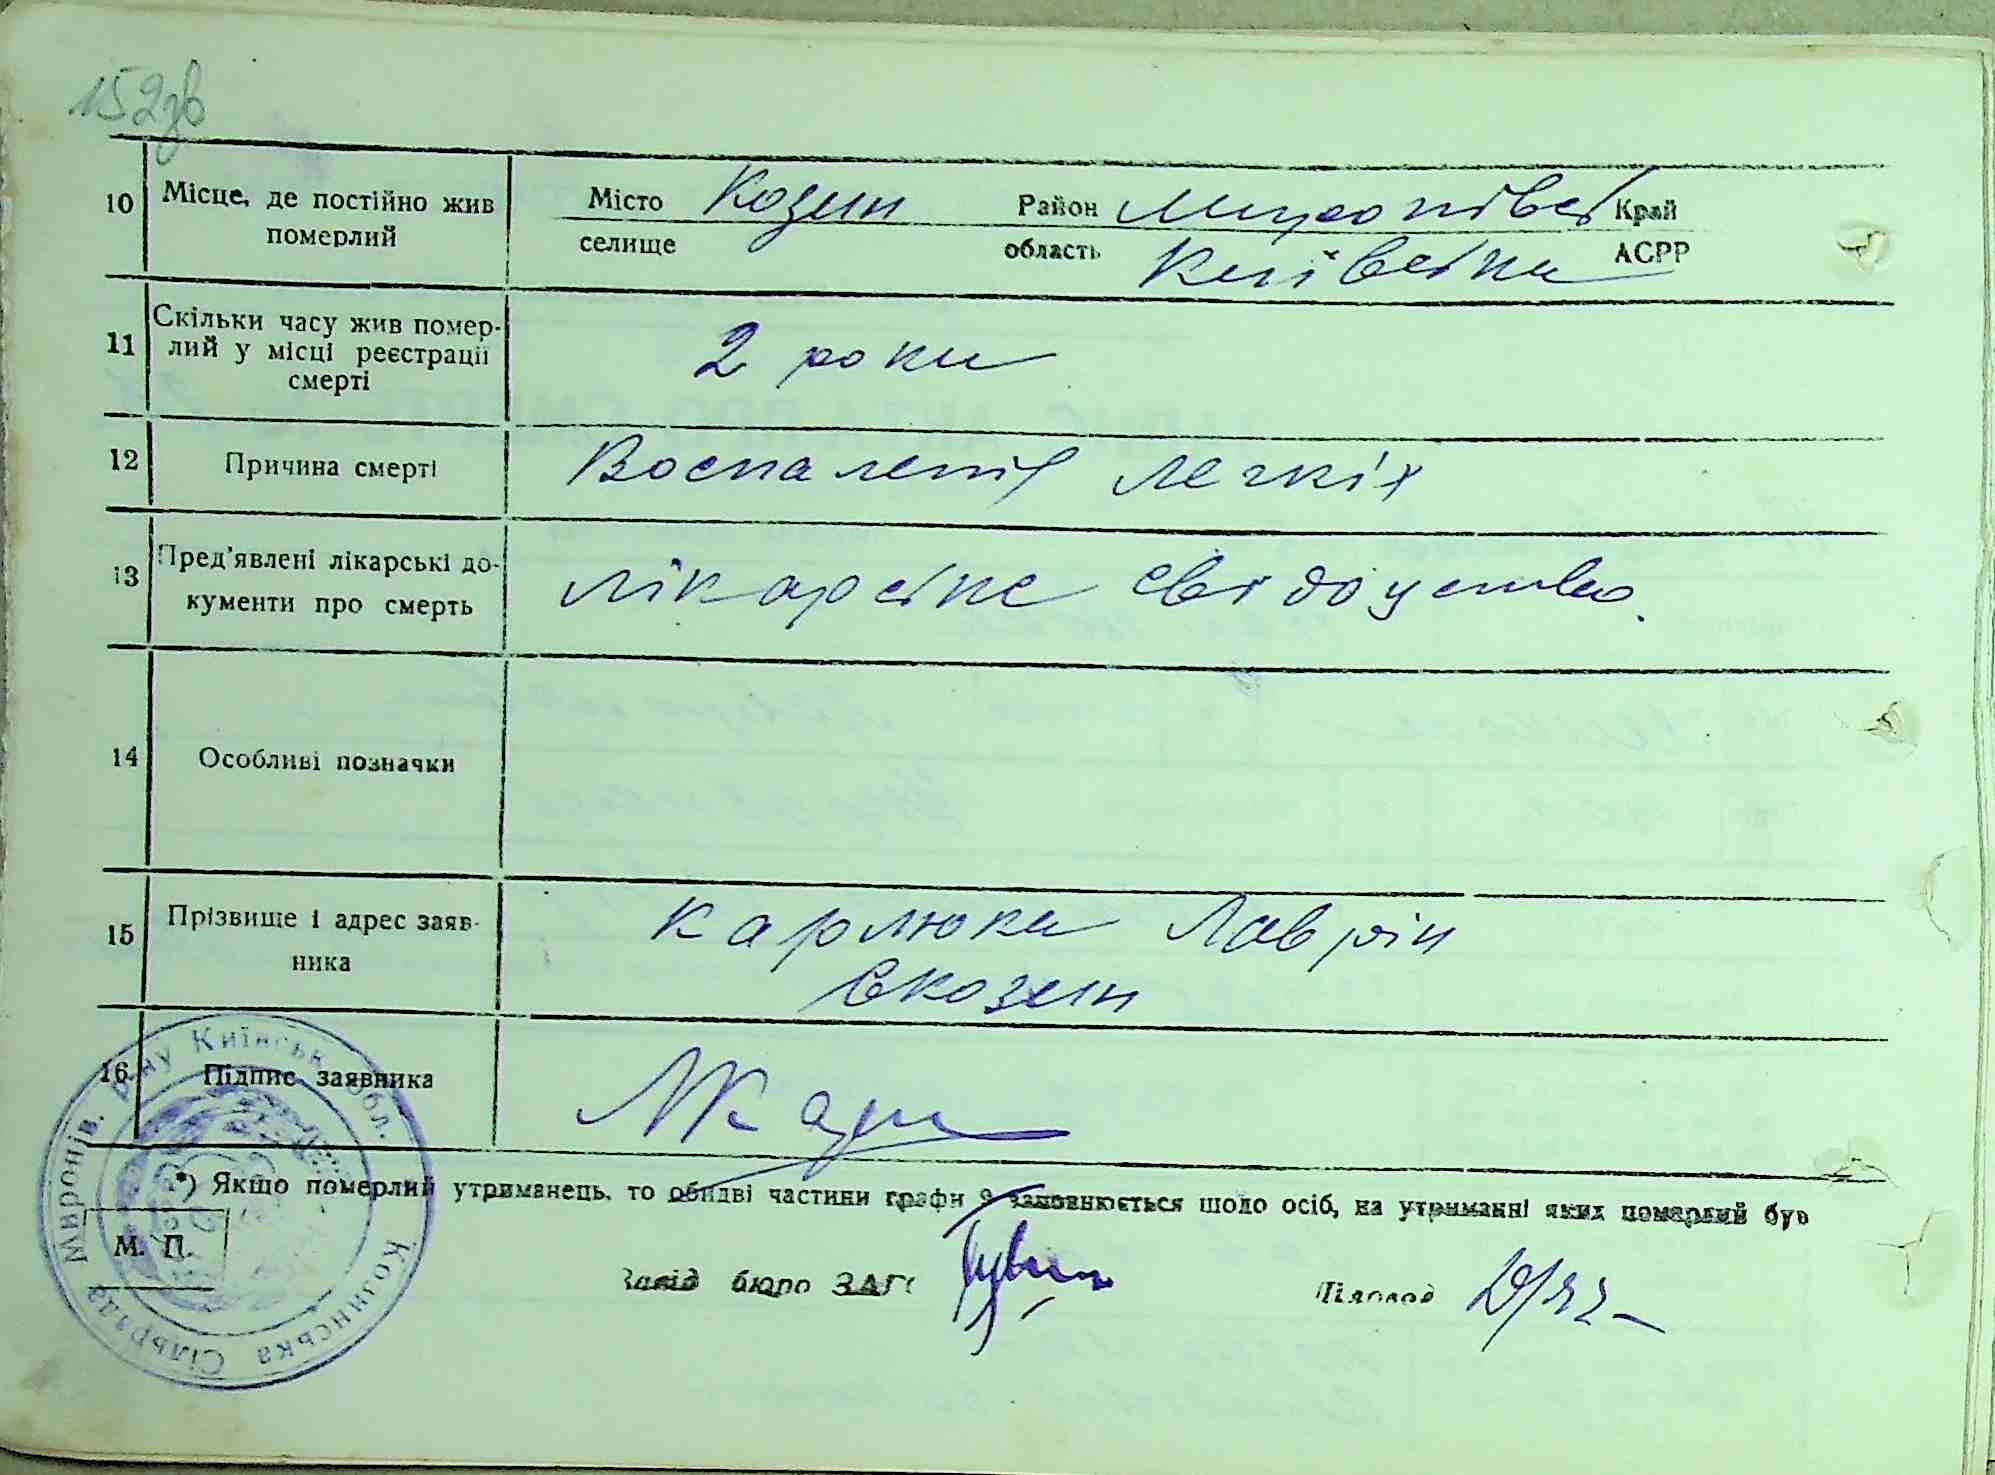 152зв
10 Місце, де постійно жив
померлий
Місто Козин Район Миронівсь Край
селище область Київська АСРР
11 Скільки часу жив помер-
лий у місці реєстрації
смерті
2 роки
12 Причина смерті Воспаленія легкіх
13 Пред'явлені лікарські до-
кументи про смерть
лікарське свідоцтво.
14 Особливі позначки
15 Прізвище і адрес заяв-
ника
Карлюка Лаврін
с Козин
16 Підпис заявника
ЛКарл
*) Якщо померлий утриманець, то обидві частини графи 9 заповнюється щодо осіб, на утриманні яких померлий був
М. П.
Завід бюро ЗАГС Діловод
Миронів. р-ну Київськ. обл. Козинська Сільрада